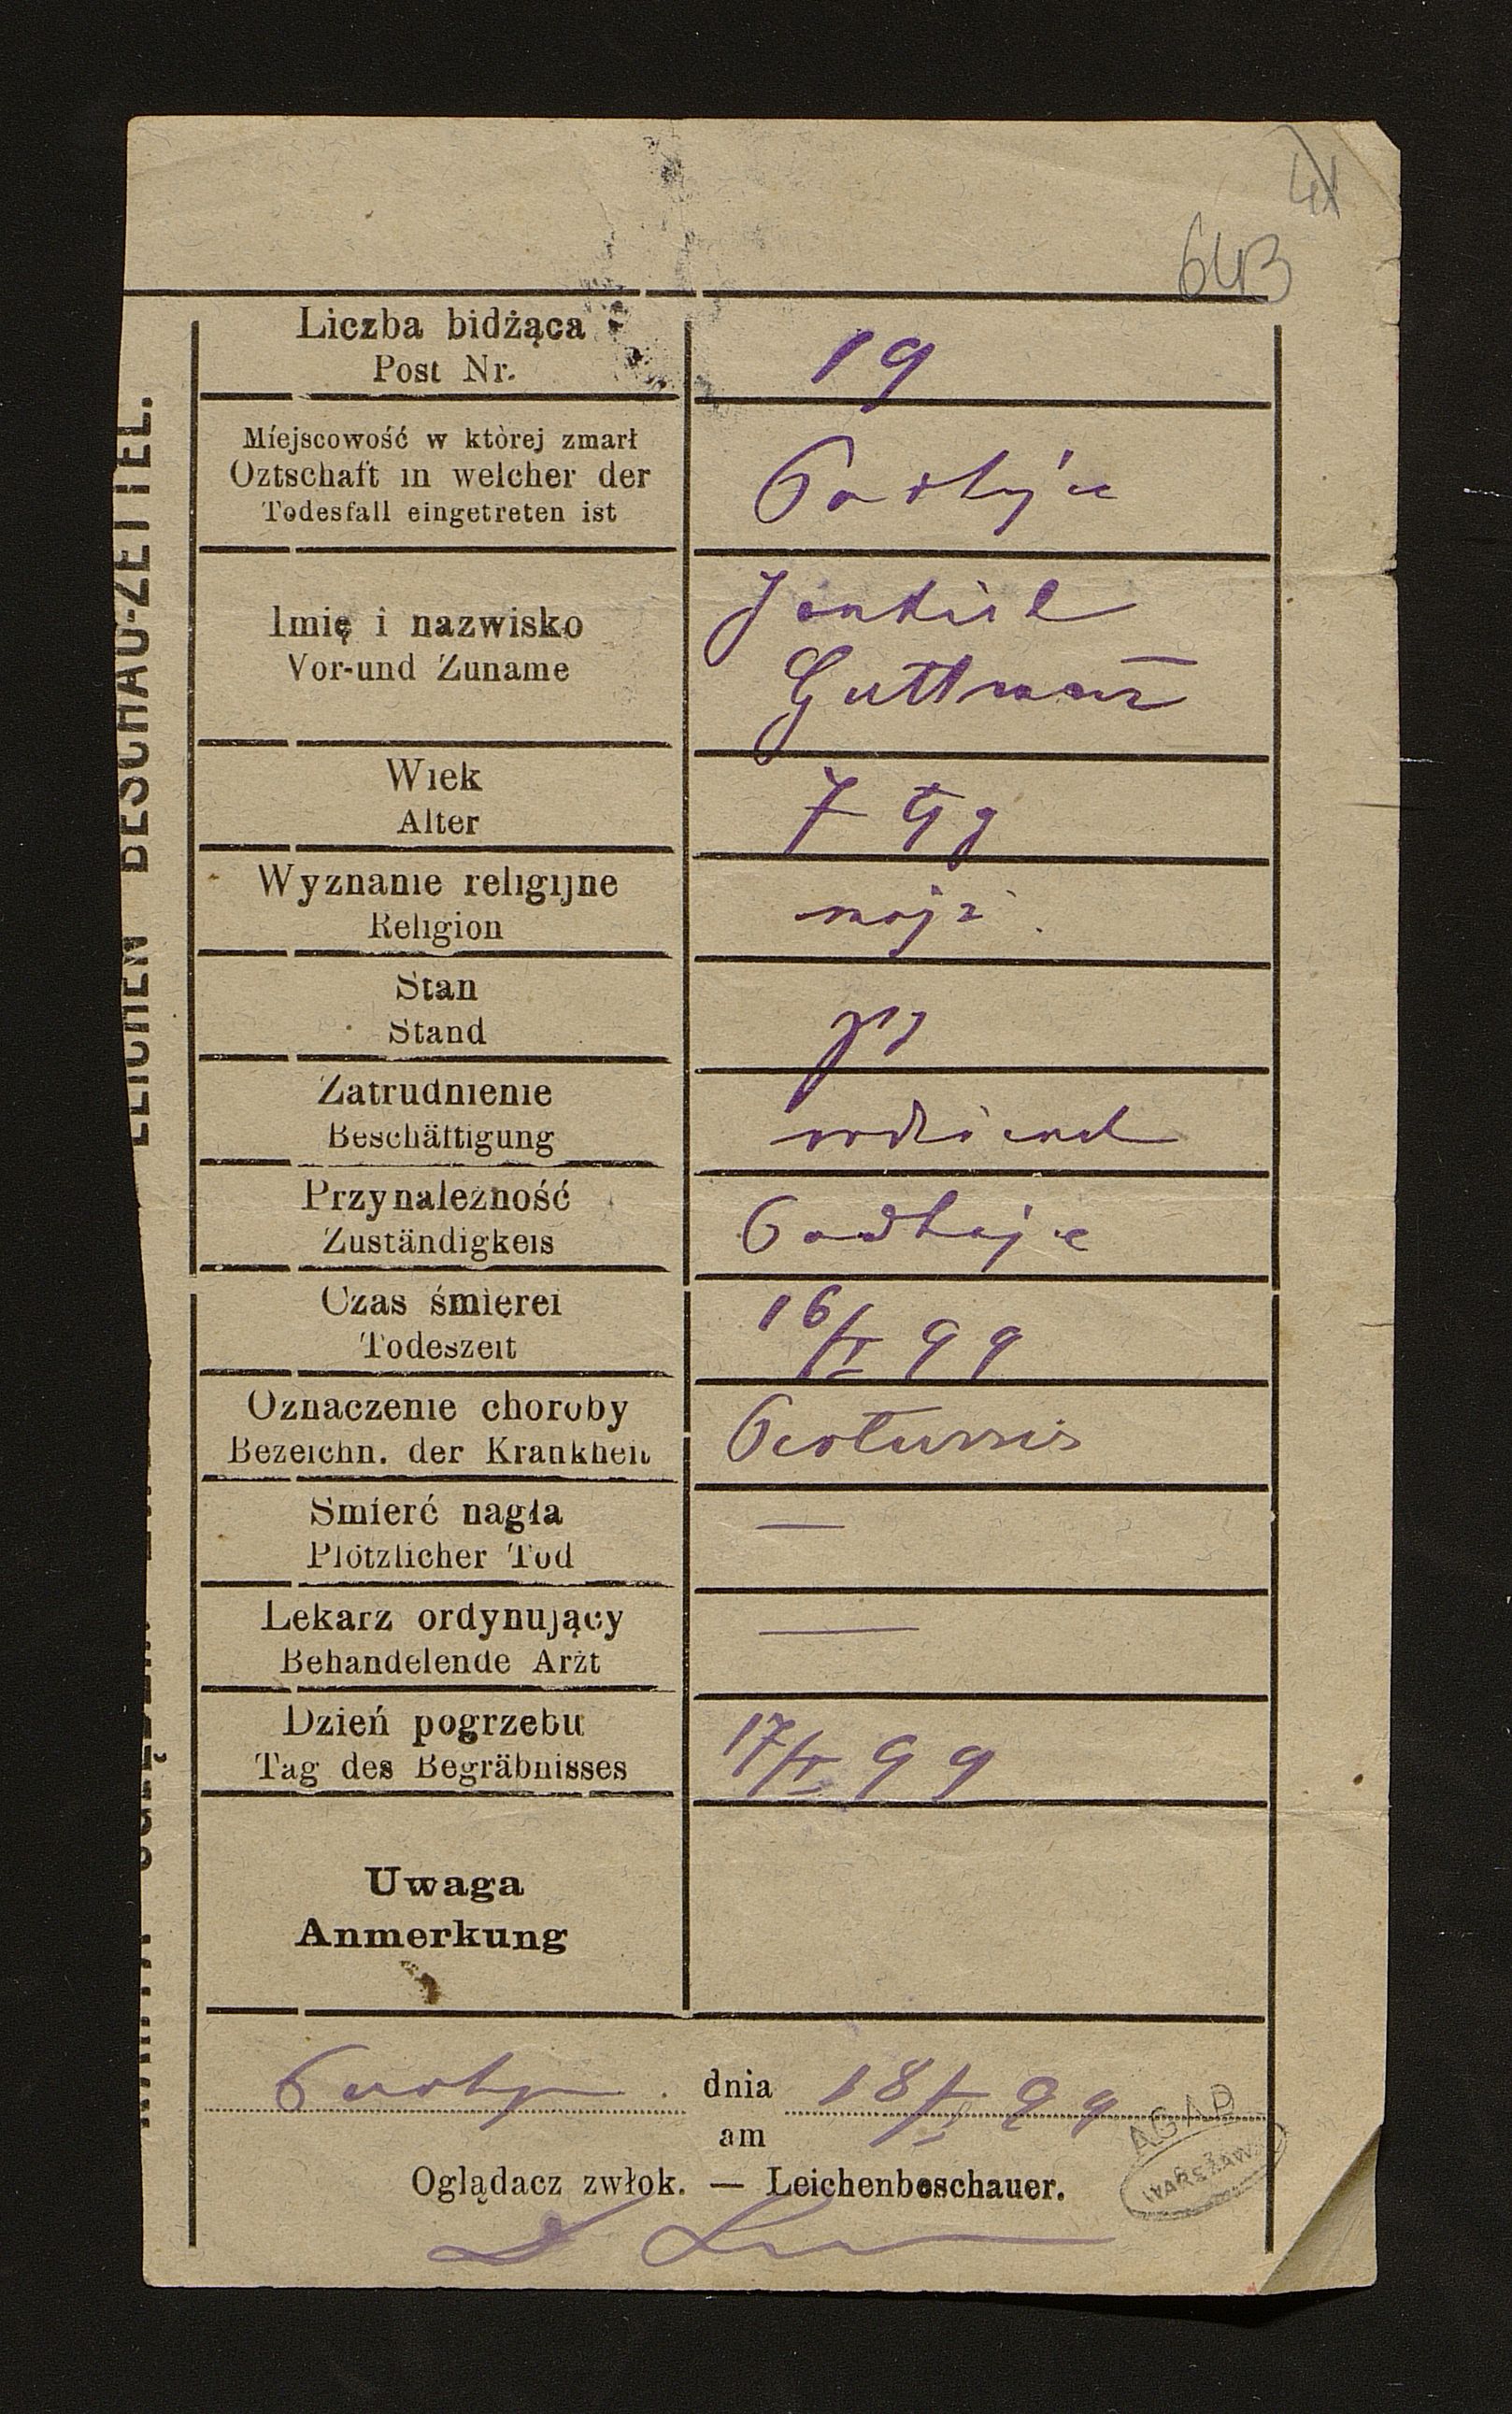 41
643
LEICHEN BESCHAU-ZETTEL.
Liczba bidżąca
Post Nr.
19
Miejscowość w której zmarł
Oztschaft in welcher der
Todesfall eingetreten ist
Imię i nazwisko
Vor-und Zuname
Jankiel
Guttman
Wiek
Alter
7
Wyznanie religijne
Religion
mojż
Stan
Stand
Zatrudnienie
Beschäftigung
Przynależność
Zuständigkeis
Podhajce
Czas śmierei
Todeszeit
16/I 99
Oznaczenie choroby
Bezeichn. der Krankheit
Pertussis
Smierć nagła
Plötzlicher Tod
—
Lekarz ordynujący
Behandelende Arżt
—
Dzień pogrzebu
Tag des Begräbnisses
17/I 99
Uwaga
Anmerkung
dnia 18/I 99
am
Oglądacz zwłok. — Leichenbeschauer.
AGAD
WARSZAWA